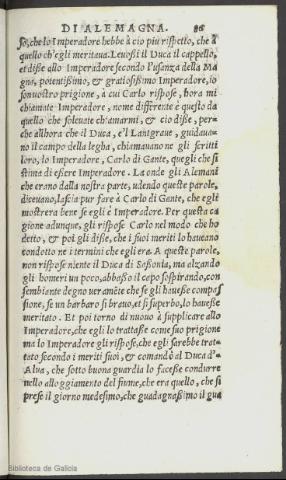 DI ALEMAGNA. 86
so, che lo Imperadore hebbe à cio piu rispetto, che à
quello ch'egli meritaua. Leuossi il Duca il cappello,
et disse allo Imperadore secondo l'usanza della Ma
gna, potentissimo, & gratiosissimo Imperadore, io
son uostro prigione, à cui Carlo rispose, hora mi
chiamate Imperadore, nome differente è questo da
quello che soleuate chiamarmi, & cio disse, per-
che allhora che il Duca, e'l Lantgraue, guidaua-
no il campo della legha, chiamauano ne gli scritti
loro, lo Imperadore, Carlo di Gante, quegli che si
stima di essere Imperadore. La onde gli Alemani
che erano dalla nostra parte, udendo queste parole,
diceuano, lascia pur fare à Carlo di Gante, che egli
mostrera bene se egli è Imperadore. Per questa ca
gione adunque, gli rispose Carlo nel modo che ho
detto, & poi gli disse, che i suoi meriti lo haueano
condotto ne i termini che egli era. A queste parole,
non rispose niente il Duca di Sassonia, ma alzando
gli homeri un poco, abbasso il capo sospirando, con
sembiante degno ueramẽte che se gli hauesse compas
sione, se un barbaro sì brauo, et sì superbo, lo hauesse
meritato. Et poi torno di nuouo à supplicare allo
Imperadore, che egli lo trattasse come suo prigione
ma lo Imperadore gli rispose, che egli sarebbe trat-
tato secondo i meriti suoi, & comandò al Duca d'-
Alua, che sotto buona guardia lo facesse condurre
nello alloggiamento del fiume, che era quello, che si
prese il giorno medesimo, che guadagnassimo il gua
Biblioteca de Galicia